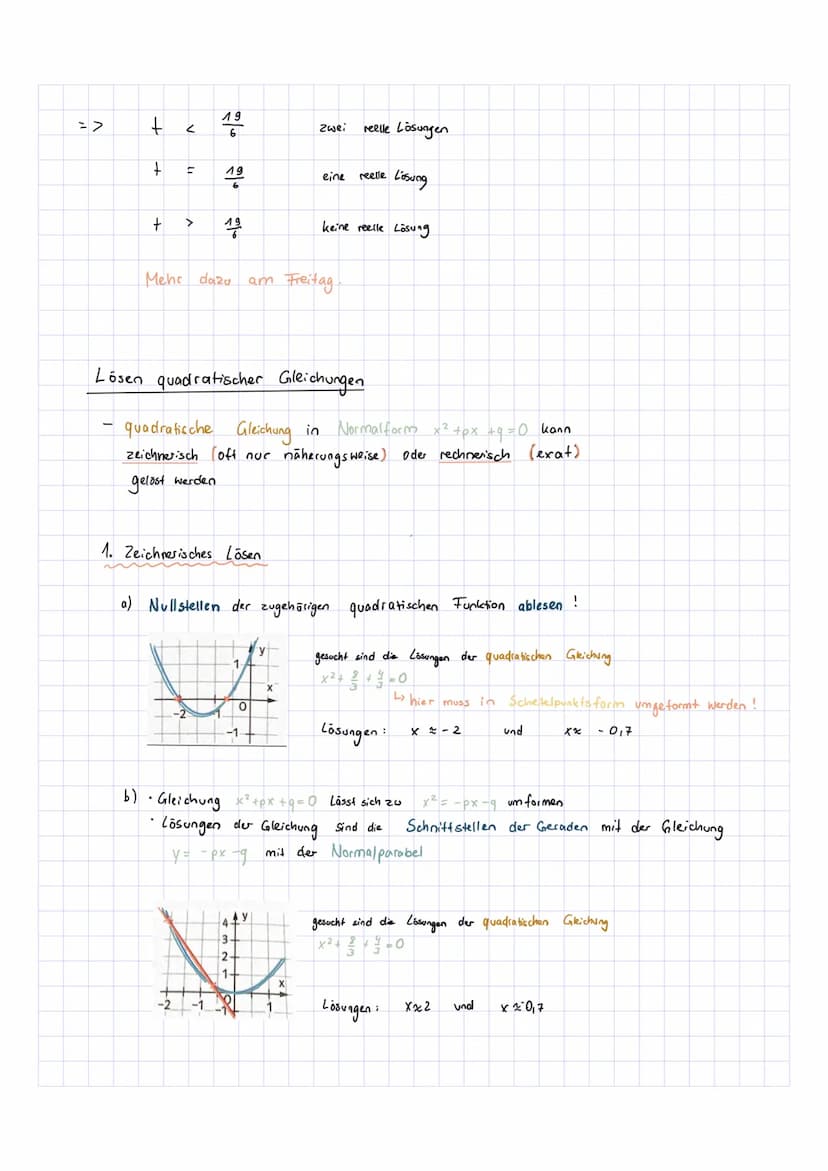 => t < 19/6 zwei reelle Lösungen
t = 19/6 eine reelle Lösung
t > 19/6 keine reelle Lösung
Mehr dazu am Freitag.
Lösen quadratischer Gleichungen
- quadratische Gleichung in Normalform x² + px + q = 0 kann
zeichnerisch (oft nur näherungsweise) oder rechnerisch (exat)
gelöst werden
1. Zeichnerisches Lösen
a) Nullstellen der zugehörigen quadratischen Funktion ablesen !
y
1
x
-2
0
-1
gesucht sind die Lösungen der quadratischen Gleichung
x² + 8/3 + 4/3 = 0
↳ hier muss in Scheitelpunktsform umgeformt werden !
Lösungen : x ≈ -2 und x ≈ -0,7
b) · Gleichung x² + px + q = 0 lässt sich zu x² = -px - q umformen
· Lösungen der Gleichung sind die Schnittstellen der Geraden mit der Gleichung
y = -px - q mit der Normalparabel
4 y
3
2
1
x
-2 -1 0 1
-1
gesucht sind die Lösungen der quadratischen Gleichung
x² + 8/3 + 4/3 = 0
Lösungen : x ≈ 2 und x ≈ -0,7